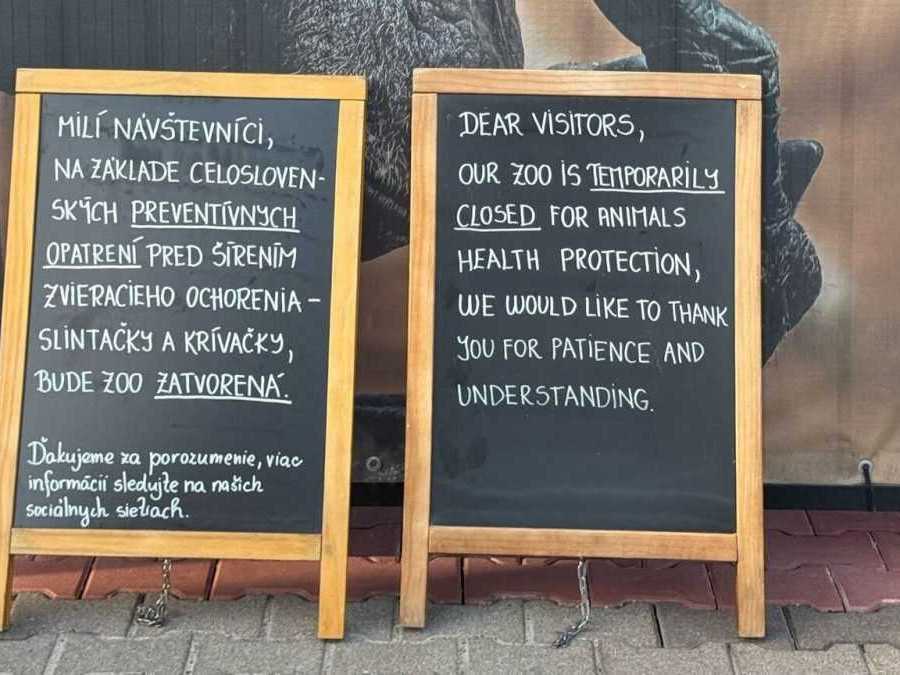 MILÍ NÁVŠTEVNÍCI,
NA ZÁKLADE CELOSLOVEN-
SKÝCH PREVENTÍVNYCH
OPATRENÍ PRED ŠÍRENÍM
ZVIERACIEHO OCHORENIA –
SLINTAČKY A KRÍVAČKY,
BUDE ZOO ZATVORENÁ.
Ďakujeme za porozumenie, viac
informácií sledujte na našich
sociálnych sieťach.
DEAR VISITORS,
OUR ZOO IS TEMPORARILY
CLOSED FOR ANIMALS
HEALTH PROTECTION,
WE WOULD LIKE TO THANK
YOU FOR PATIENCE AND
UNDERSTANDING.